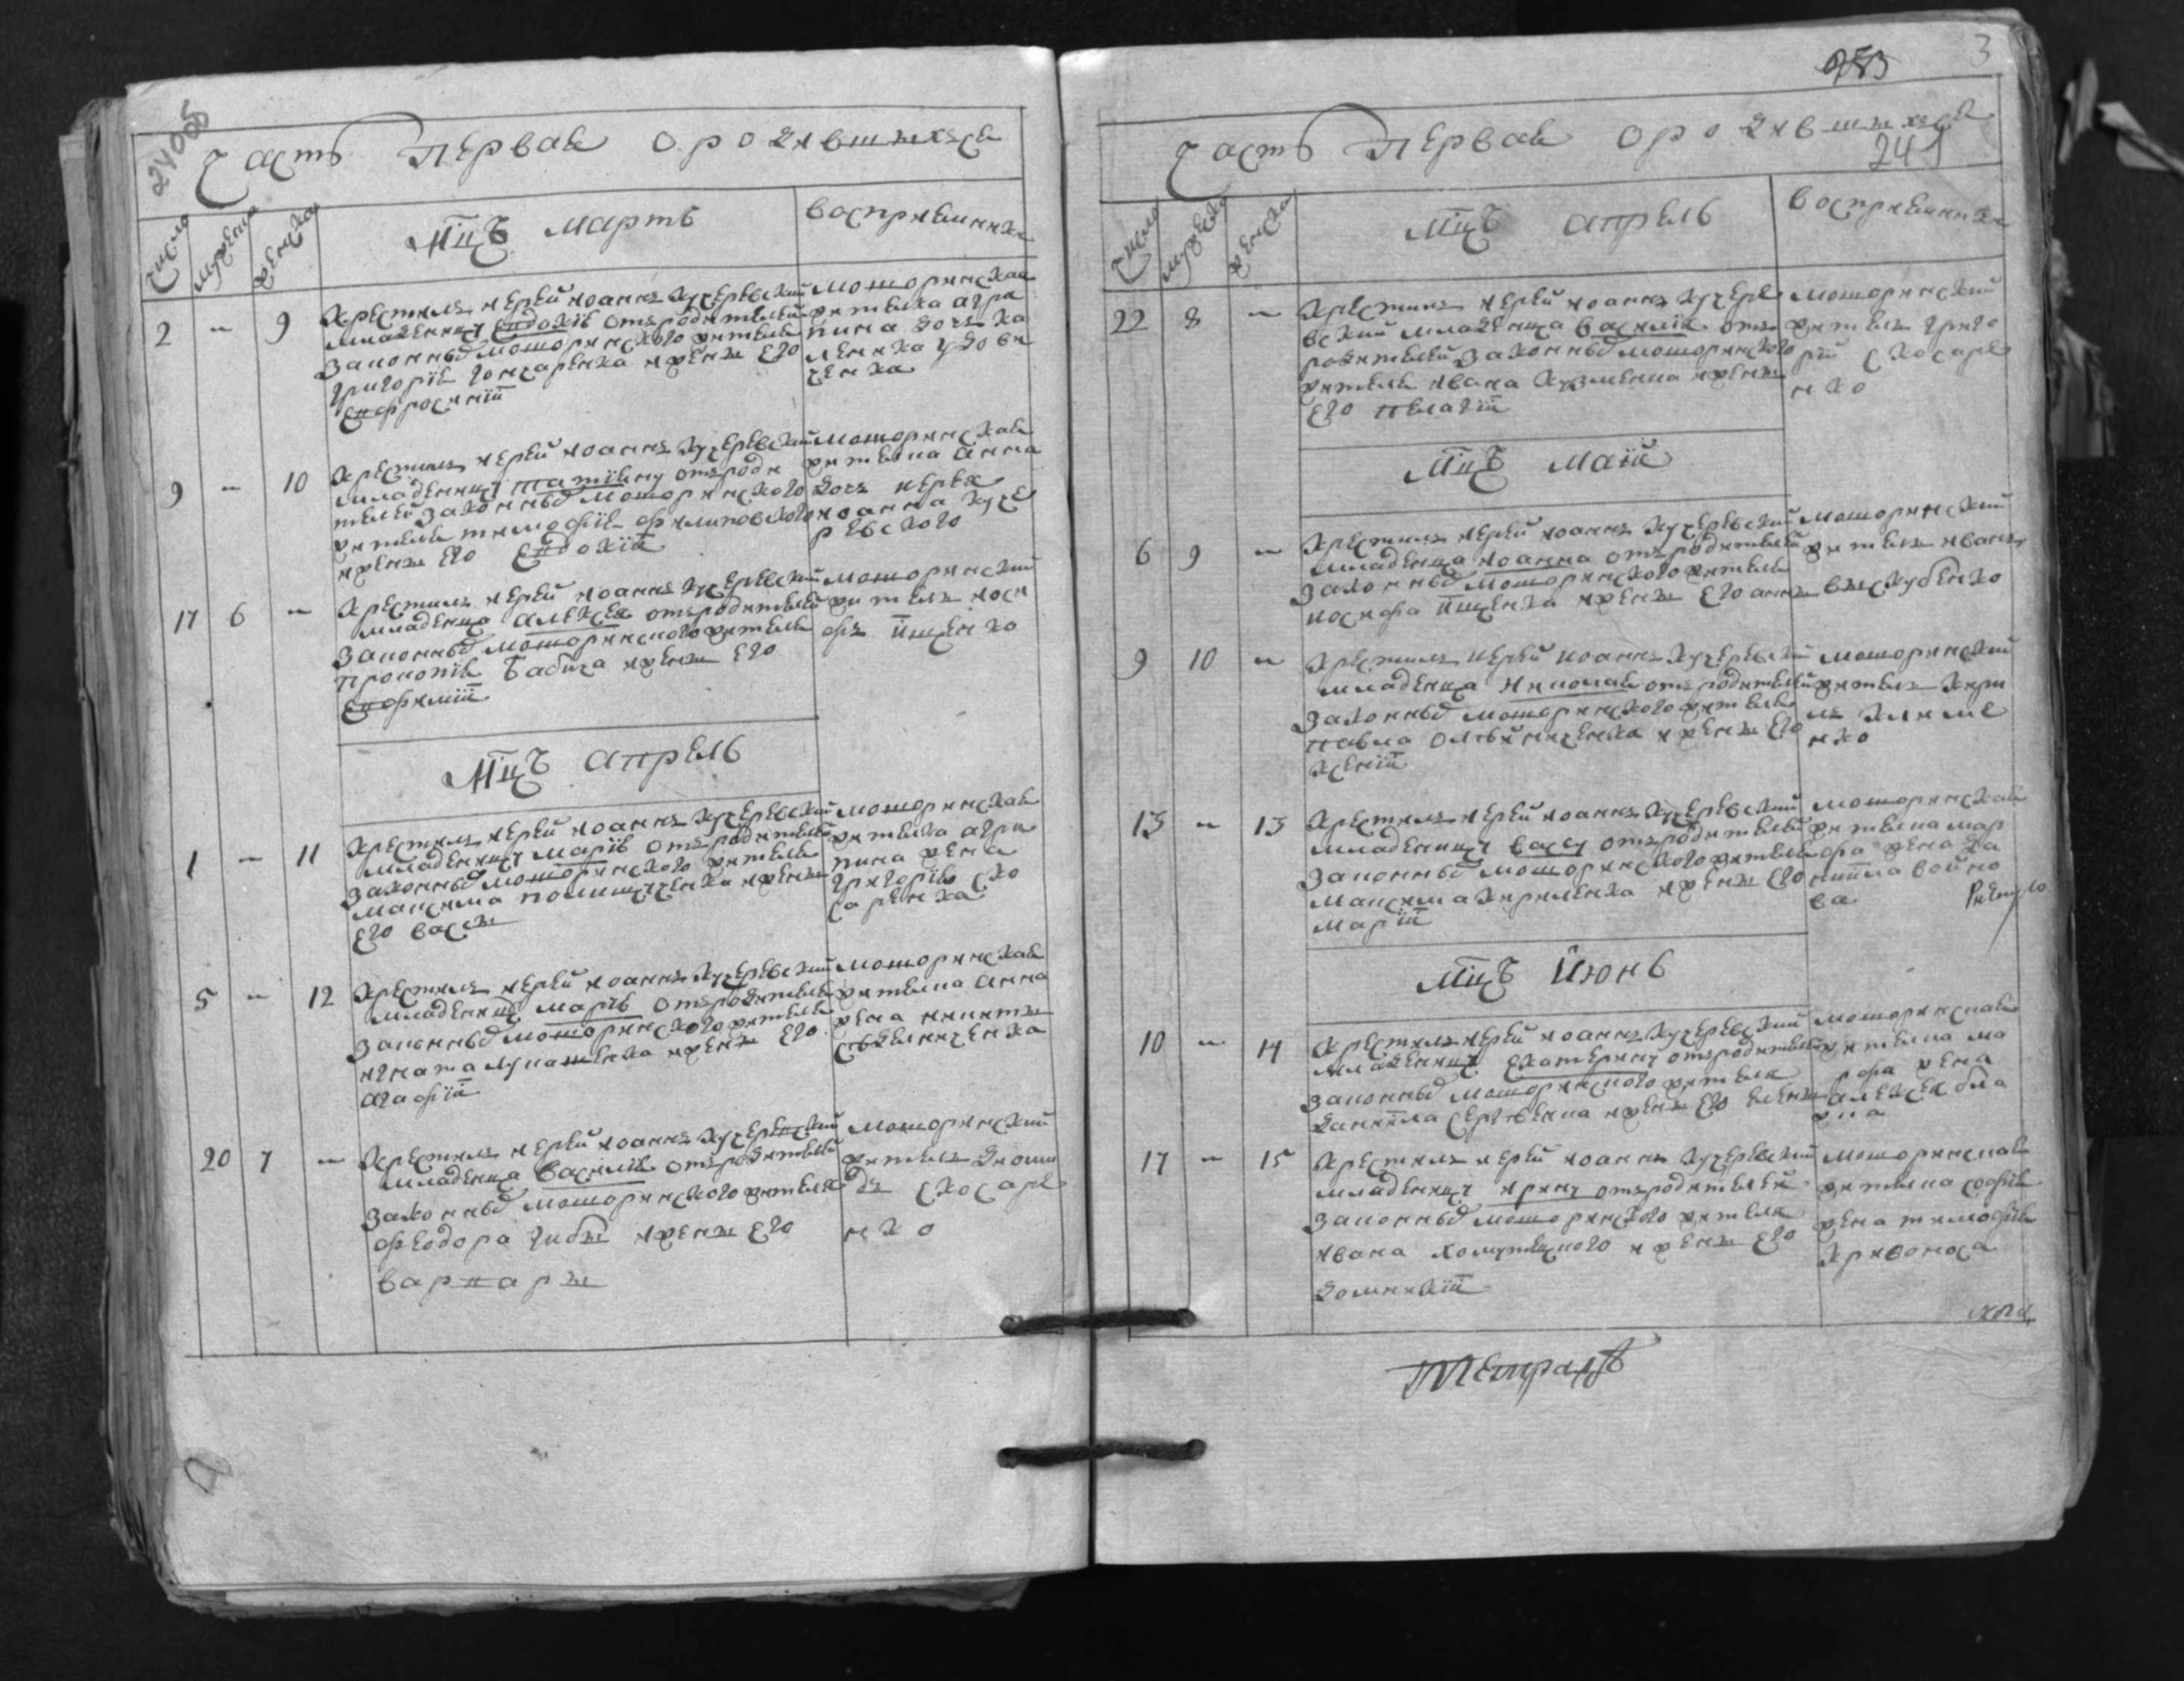 Часть Первая о родившихся
число
мужеска
женска
Мцъ Мартъ
восприемники
2 - 9
Крестилъ иерей иоаннъ кучеревский
младеницу Евдокію отъ родителей
законныхъ мошоринского жителя
григорія гончаренка и жены его
Евфросиніи
мошоринская
жителка агра
пина дочъ ка
леника удови
ченка
9 - 10
Крестилъ иерей иоаннъ кучеревский
младеницу татіяну отъ роди
телей законныхъ мошоринского
жителя тимофія филиповского
и жены его Евдокіи
мошоринская
жителка анна
дочъ иерея
иоанна куче
ревского
17 6 -
Крестилъ иерей иоаннъ кучеревский
младенца алексея отъ родителей
законныхъ мошоринского жителя
прокопія бабича и жены его
Евфиміи
мошоринский
житель иоси
фъ йщенко
Мцъ апрель
1 - 11
Крестилъ иерей иоаннъ кучеревский
младеницу марію отъ родителей
законныхъ мошоринского жителя
максима полищученка и жены
его васы
мошоринская
жителка агри
пина жена
григорія ско
саренка
5 - 12
Крестилъ иерей иоаннъ кучеревский
младеницу марію отъ родителей
законныхъ мошоринского жителя
игната лукашенка и жены его
агафіи
мошоринская
жителка анна
жена никиты
20 7 -
Крестилъ иерей иоаннъ кучеревский
младенца василія отъ родителей
законныхъ мошоринского жителя
феодора гибы и жены его
варвары
мошоринский
житель диоми
дъ скосаре
нко
283
3
Часть Первая о родившихся
241
число
мужеска
женска
Мцъ апрель
восприемники
22 8 -
Крестилъ иерей иоаннъ кучере
вский младенца василія отъ
родителей законныхъ мошоринского
жителя ивана кузменка и жены
его пелагіи
мошоринский
житель григо
рій скосаре
нко
Мцъ маій
6 9 -
Крестилъ иерей иоаннъ кучеревский
младенца иоанна отъ родителей
законныхъ мошоринского жителя
иосифа йщенка и жены его анны
мошоринский
житель иванъ
выскубенко
9 10 -
Крестилъ иерей иоаннъ кучеревский
младенца николая отъ родителей
законныхъ мошоринского жителя
павла олейниченка и жены его
ксеніи
мошоринский
житель кири
лъ климе
нко
13 - 13
Крестилъ иерей иоаннъ кучеревский
младеницу васу отъ родителей
законныхъ мошоринского жителя
максима кириленка и жены его
маріи
мошоринская
жителка мар
фа жена да
ниила войно
ва
Мцъ йюнь
10 - 14
Крестилъ иерей иоаннъ кучеревский
младеницу екатерину отъ родителей
законныхъ мошоринского жителя
даниила сергиенка и жены его елены
мошоринская
жителка ма
рфа жена
алексея бла
жка
17 - 15
Крестилъ иерей иоаннъ кучеревский
младеницу ирину отъ родителей
законныхъ мошоринского жителя
ивана хомутецкого и жены его
доминикіи
мошоринская
жителка софія
жена тимофія
кривоноса